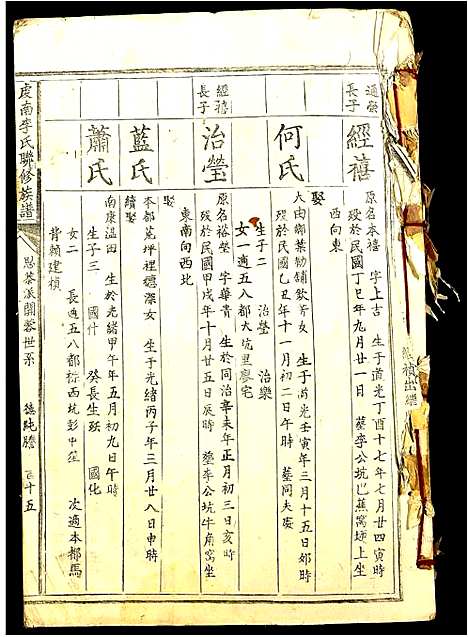 通顏
長子
經禧
原名本禧 字上古 生于道光丁酉十七年七月廿四寅時
歿於民國丁巳年九月廿一日 塟李公坑巴蕉窩 上坐
西向東
娶
何氏
大由鄉葉物舖飲 女 生于道光壬寅年三月十五日夘時
歿於民國乙丑年十一月初二日午時 塟同夫處
生子二 治瑩 治樂
女一適五八都大坑里廖宅
經禧
長子
治瑩
原名裕瑩 字華貴 生於同治辛未年正月初三日亥時
歿於民國甲戌年十月廿五日辰時 塟李公坑牛角窩坐
東南向西北
娶
藍氏
本都 坪裡 女 生于光緒丙子年三月廿八日申時
續娶
蕭氏
南康温田 生於光緒甲午年五月初九日午時
生子三 國什 癸長生殀 國化
女二 長適五八都棕西坑彭中 次適本都馬
背賴建楨
虔南李氏聯修族譜
思恭派開蓉世系
德純謄
百十五
禎出繼